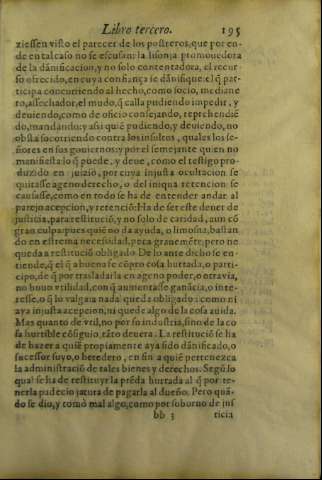 Libro tercero. 195
ziessen visto el parecer de los postreros, que por en-
de en tal caso no se escusan: la lisonja promouedora
de la dānificacion, y no solo contentadora, el recur-
so ofrecido, en cuya confiança se dānifique: el q̄ par-
ticipa concurriendo al hecho, como socio, mediane
ro, assechador, el mudo, q̄ calla pudiendo impedir, y
deuiendo, como de oficio consejando, reprehendiē
do, mandando: y assi quiē pudiendo, y deuiendo, no
obsta socorriendo contra los insultos, quales los se-
ñores en sus gouiernos: y por el semejante quien no
manifiesta lo q̄ puede, y deue, como el testigo pro-
duzido en juizio, por cuya injusta ocultacion se
quitasse ageno derecho, o del iniqua retencion se
causasse, como en todo se ha de entender andar al
parejo acepcion, y retenciō: Ha de ser este deuer de
justicia, para restituciō, y no solo de caridad, aun cō
gran culpa: pues quiē no da ayuda, o limosna, bastan
do en estrema necessidad, peca grauemēte, pero no
queda a restituciō obligado De lo ante dicho se en-
tiende, q̄ el q̄ a buena fe cōpro cosa hurtada, o parti-
cipo, de q̄ por trasladarla en ageno poder, o otra via,
no houo vtilidad, con q̄ aumentasse ganācia, o inte-
resse, o q̄ lo valga ia nada queda obligado: como ni
aya injusta acepcion, ni quede algo de la cosa auida.
Mas quanto de vtil, no por su industria, sino de la co
sa hurtible cōsiguio, tāto deuera. La restituciō se ha
de hazer a quiē propiamente aya sido dānificado, o
sucessor suyo, o heredero, en fin a quiē pertenezca
la administraciō de tales bienes y derechos. Segū lo
qual se ha de restituyr la prēda hurtada al q̄ por te-
nerla padecio jatura de pagarla al dueño. Pero quā-
do se dio, y tomō mal algo, como por soborno de jus
bb 3 ticia